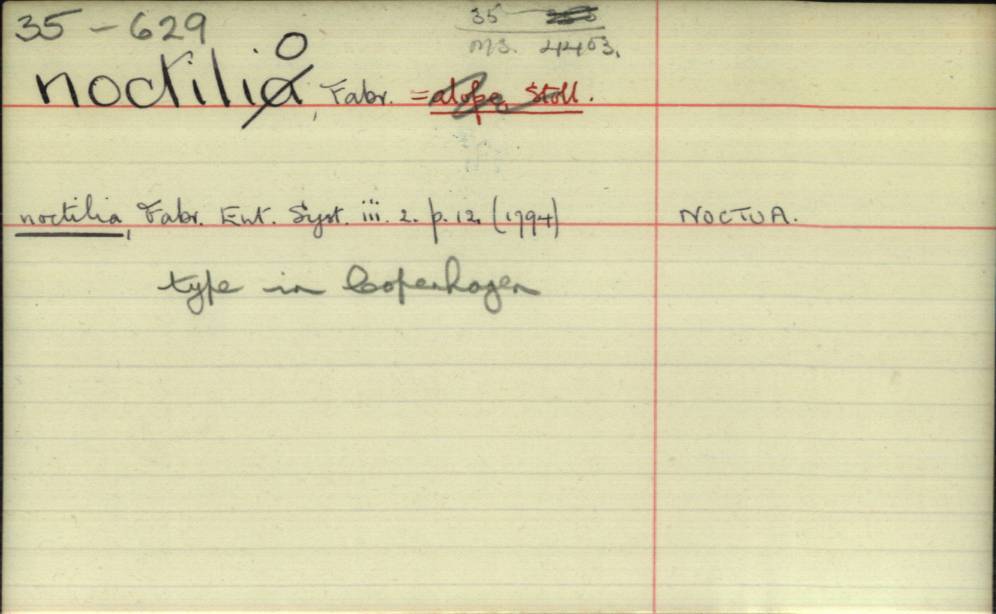 35 - 629
35
MS. 4403.
noctilio, Fabr. = alope, Stoll.
noctilia, Fabr. Ent. Syst. iii. 2. p. 12. (1794) NOCTUA.
type in Copenhagen